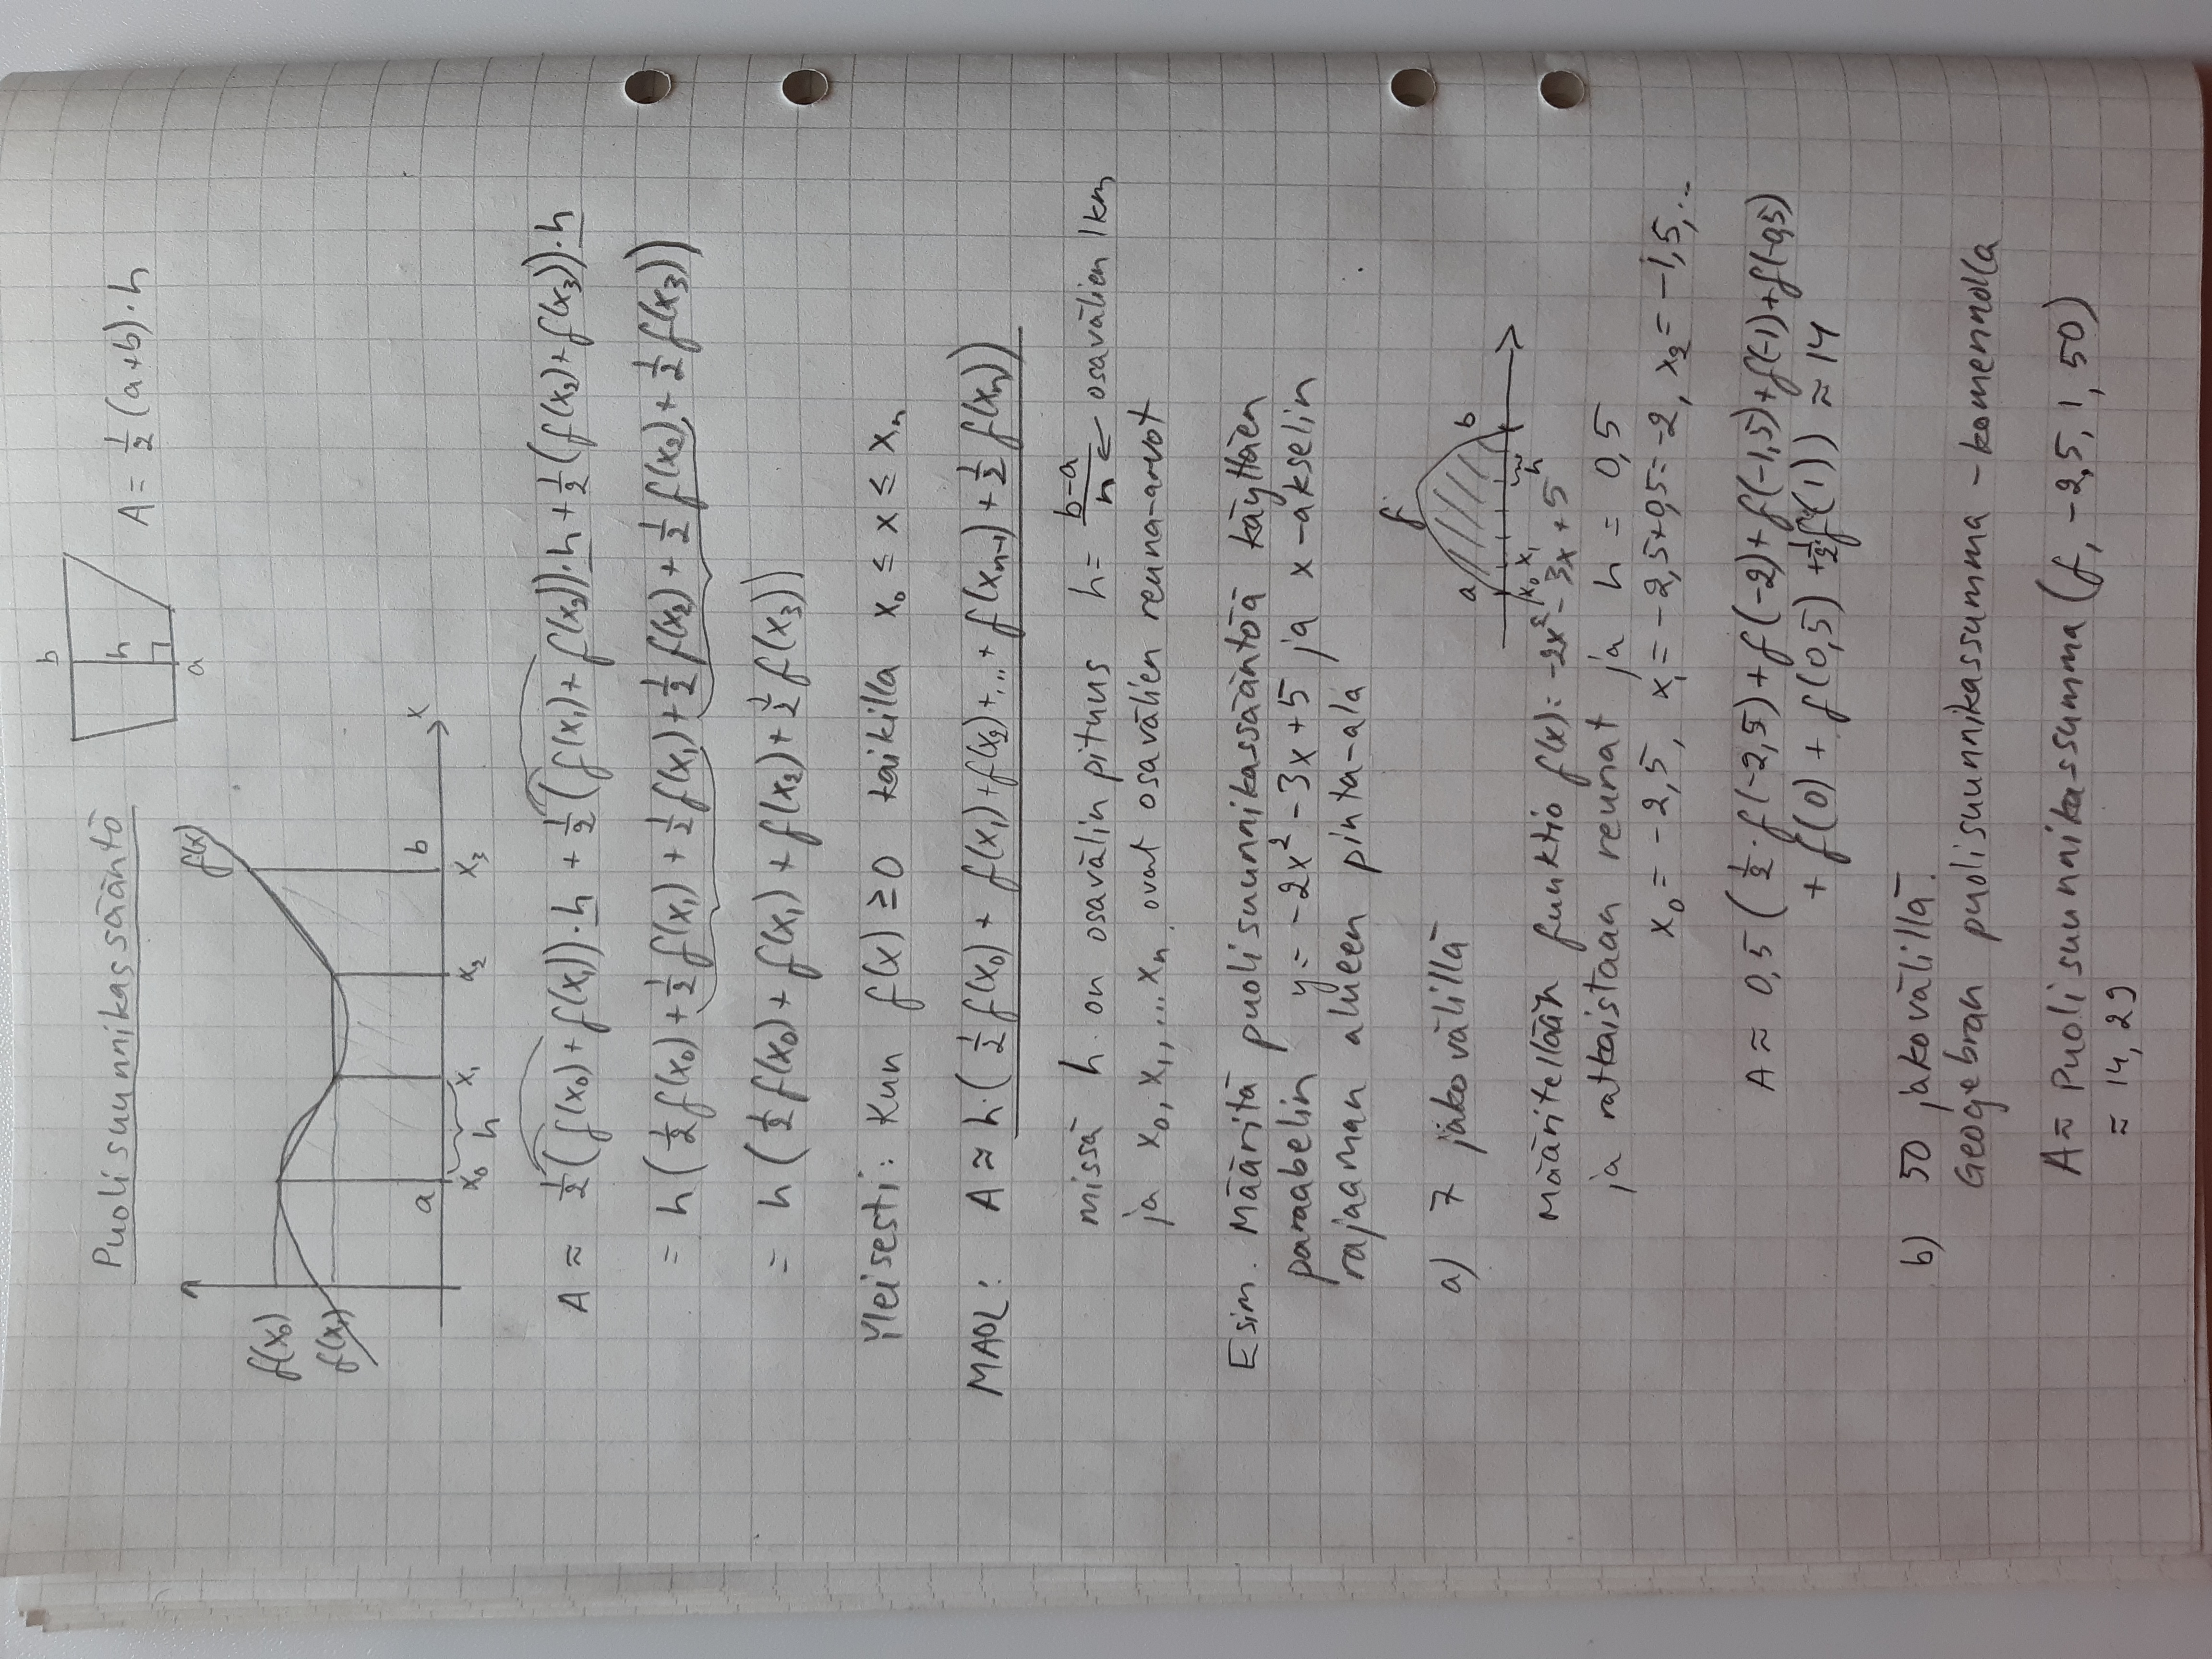 Puolisuunnikassääntö
b
h
a
A = 1/2 (a+b)·h
f(x)
f(x₀)
f(x₁)
a
b
x
x₀ x₁ x₂ x₃
h
A ≈ 1/2 (f(x₀) + f(x₁))·h + 1/2 (f(x₁) + f(x₂))·h + 1/2 (f(x₂) + f(x₃))·h
= h (1/2 f(x₀) + 1/2 f(x₁) + 1/2 f(x₁) + 1/2 f(x₂) + 1/2 f(x₂) + 1/2 f(x₃))
= h (1/2 f(x₀) + f(x₁) + f(x₂) + 1/2 f(x₃))
Yleisesti: Kun f(x) ≥ 0 kaikilla x₀ ≤ x ≤ xₙ
MAOL: A ≈ h·(1/2 f(x₀) + f(x₁) + f(x₂) + ... + f(xₙ₋₁) + 1/2 f(xₙ))
missä h on osavälin pituus h = (b-a)/n ← osavälien lkm
ja x₀, x₁, ... xₙ ovat osavälien reuna-arvot
Esim. Määritä puolisuunnikassääntöä käyttäen
paraabelin y = -2x² - 3x + 5 ja x-akselin
rajaaman alueen pinta-ala
a) 7 jakovälillä
f
a
b
x₀ x₁
h
Määritellään funktio f(x) = -2x² - 3x + 5
ja ratkaistaan reunat ja h = 0,5
x₀ = -2,5, x₁ = -2,5+0,5 = -2, x₂ = -1,5, ...
A ≈ 0,5 (1/2 · f(-2,5) + f(-2) + f(-1,5) + f(-1) + f(-0,5)
+ f(0) + f(0,5) + 1/2 f(1)) ≈ 14
b) 50 jakovälillä.
Geogebran puolisuunnikassumma -komennolla
A ≈ Puolisuunnikassumma (f, -2,5, 1, 50)
≈ 14,29